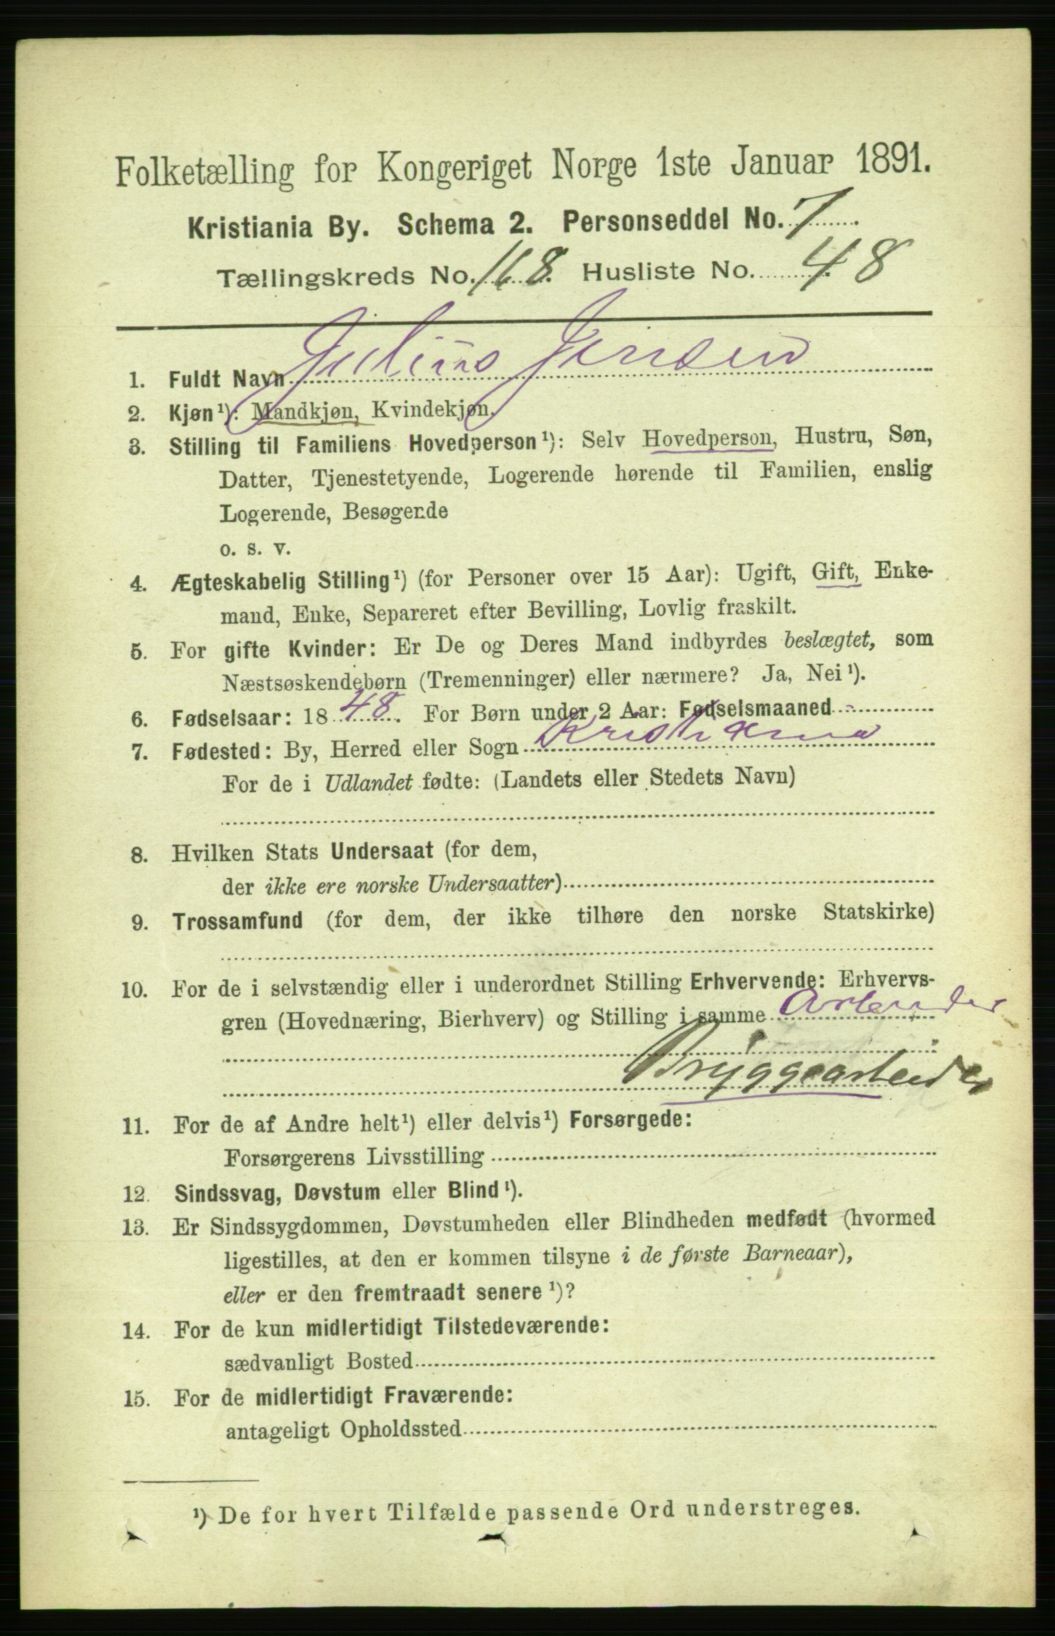 Folketælling for Kongeriget Norge 1ste Januar 1891.
Kristiania By. Schema 2. Personseddel No. 7
Tællingskreds No. 168. Husliste No. 48
1. Fuldt Navn Julius Jensen
2. Kjøn¹): Mandkjøn, Kvindekjøn.
3. Stilling til Familiens Hovedperson¹): Selv Hovedperson, Hustru, Søn,
Datter, Tjenestetyende, Logerende hørende til Familien, enslig
Logerende, Besøgende
o. s. v.
4. Ægteskabelig Stilling¹) (for Personer over 15 Aar): Ugift, Gift, Enke-
mand, Enke, Separeret efter Bevilling, Lovlig fraskilt.
5. For gifte Kvinder: Er De og Deres Mand indbyrdes beslægtet, som
Næstsøskendebørn (Tremenninger) eller nærmere? Ja, Nei¹).
6. Fødselsaar: 1848. For Børn under 2 Aar: Fødselsmaaned
7. Fødested: By, Herred eller Sogn Kristiania
For de i Udlandet fødte: (Landets eller Stedets Navn)
8. Hvilken Stats Undersaat (for dem,
der ikke ere norske Undersaatter)
9. Trossamfund (for dem, der ikke tilhøre den norske Statskirke)
10. For de i selvstændig eller i underordnet Stilling Erhvervende: Erhvervs-
gren (Hovednæring, Bierhverv) og Stilling i samme Arbeider
Bryggearbeider
11. For de af Andre helt¹) eller delvis¹) Forsørgede:
Forsørgerens Livsstilling
12. Sindssvag, Døvstum eller Blind¹).
13. Er Sindssygdommen, Døvstumheden eller Blindheden medfødt (hvormed
ligestilles, at den er kommen tilsyne i de første Barneaar),
eller er den fremtraadt senere¹)?
14. For de kun midlertidigt Tilstedeværende:
sædvanligt Bosted
15. For de midlertidigt Fraværende:
antageligt Opholdssted
¹) De for hvert Tilfælde passende Ord understreges.